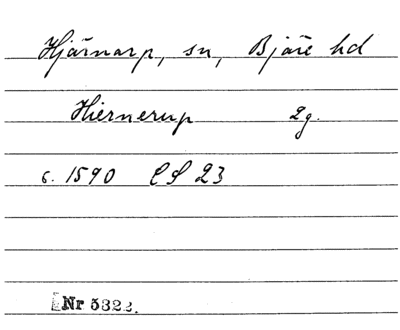 Hjärnarp, sn, Bjäre hd
Hiernerup 2g.
c. 1590 CS 23
Nr 5322.